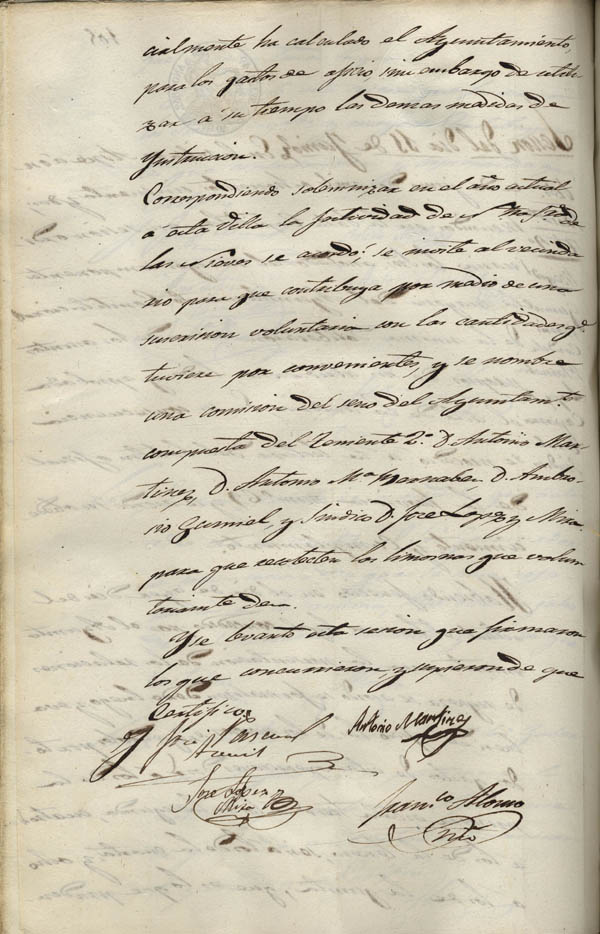 cialmente ha calculado el Ayuntamiento,
para los gastos de oficio, sin embargo de utili-
zar a su tiempo las demas medidas de
Ynstruccion.
Correspondiendo solemnizar en el año actual
a esta Villa la festividad de Ntra Srâ de
las Nieves se acordó; se invite al vecinda
rio para que contribuya por medio de una
suscrision voluntaria con las cantidades qe.
tuviere por convenientes, y se nombre
una comision del seno del Ayuntamto.
compuesta del Teniente 2.º D. Antonio Mar-
tinez, D. Antonio Mª Bernabeu, D. Ambro-
sio Gumiel, y Sindico D. Jose Lopez y Mira
para que recolecten las limosnas que volun
tariamte. den.
Y se levanto esta sesion que firmaron
los que concurrieron, y supieron de que
Certifico.
Antonio Martinez
Jose Lopez
Mira
Franco. Alonso